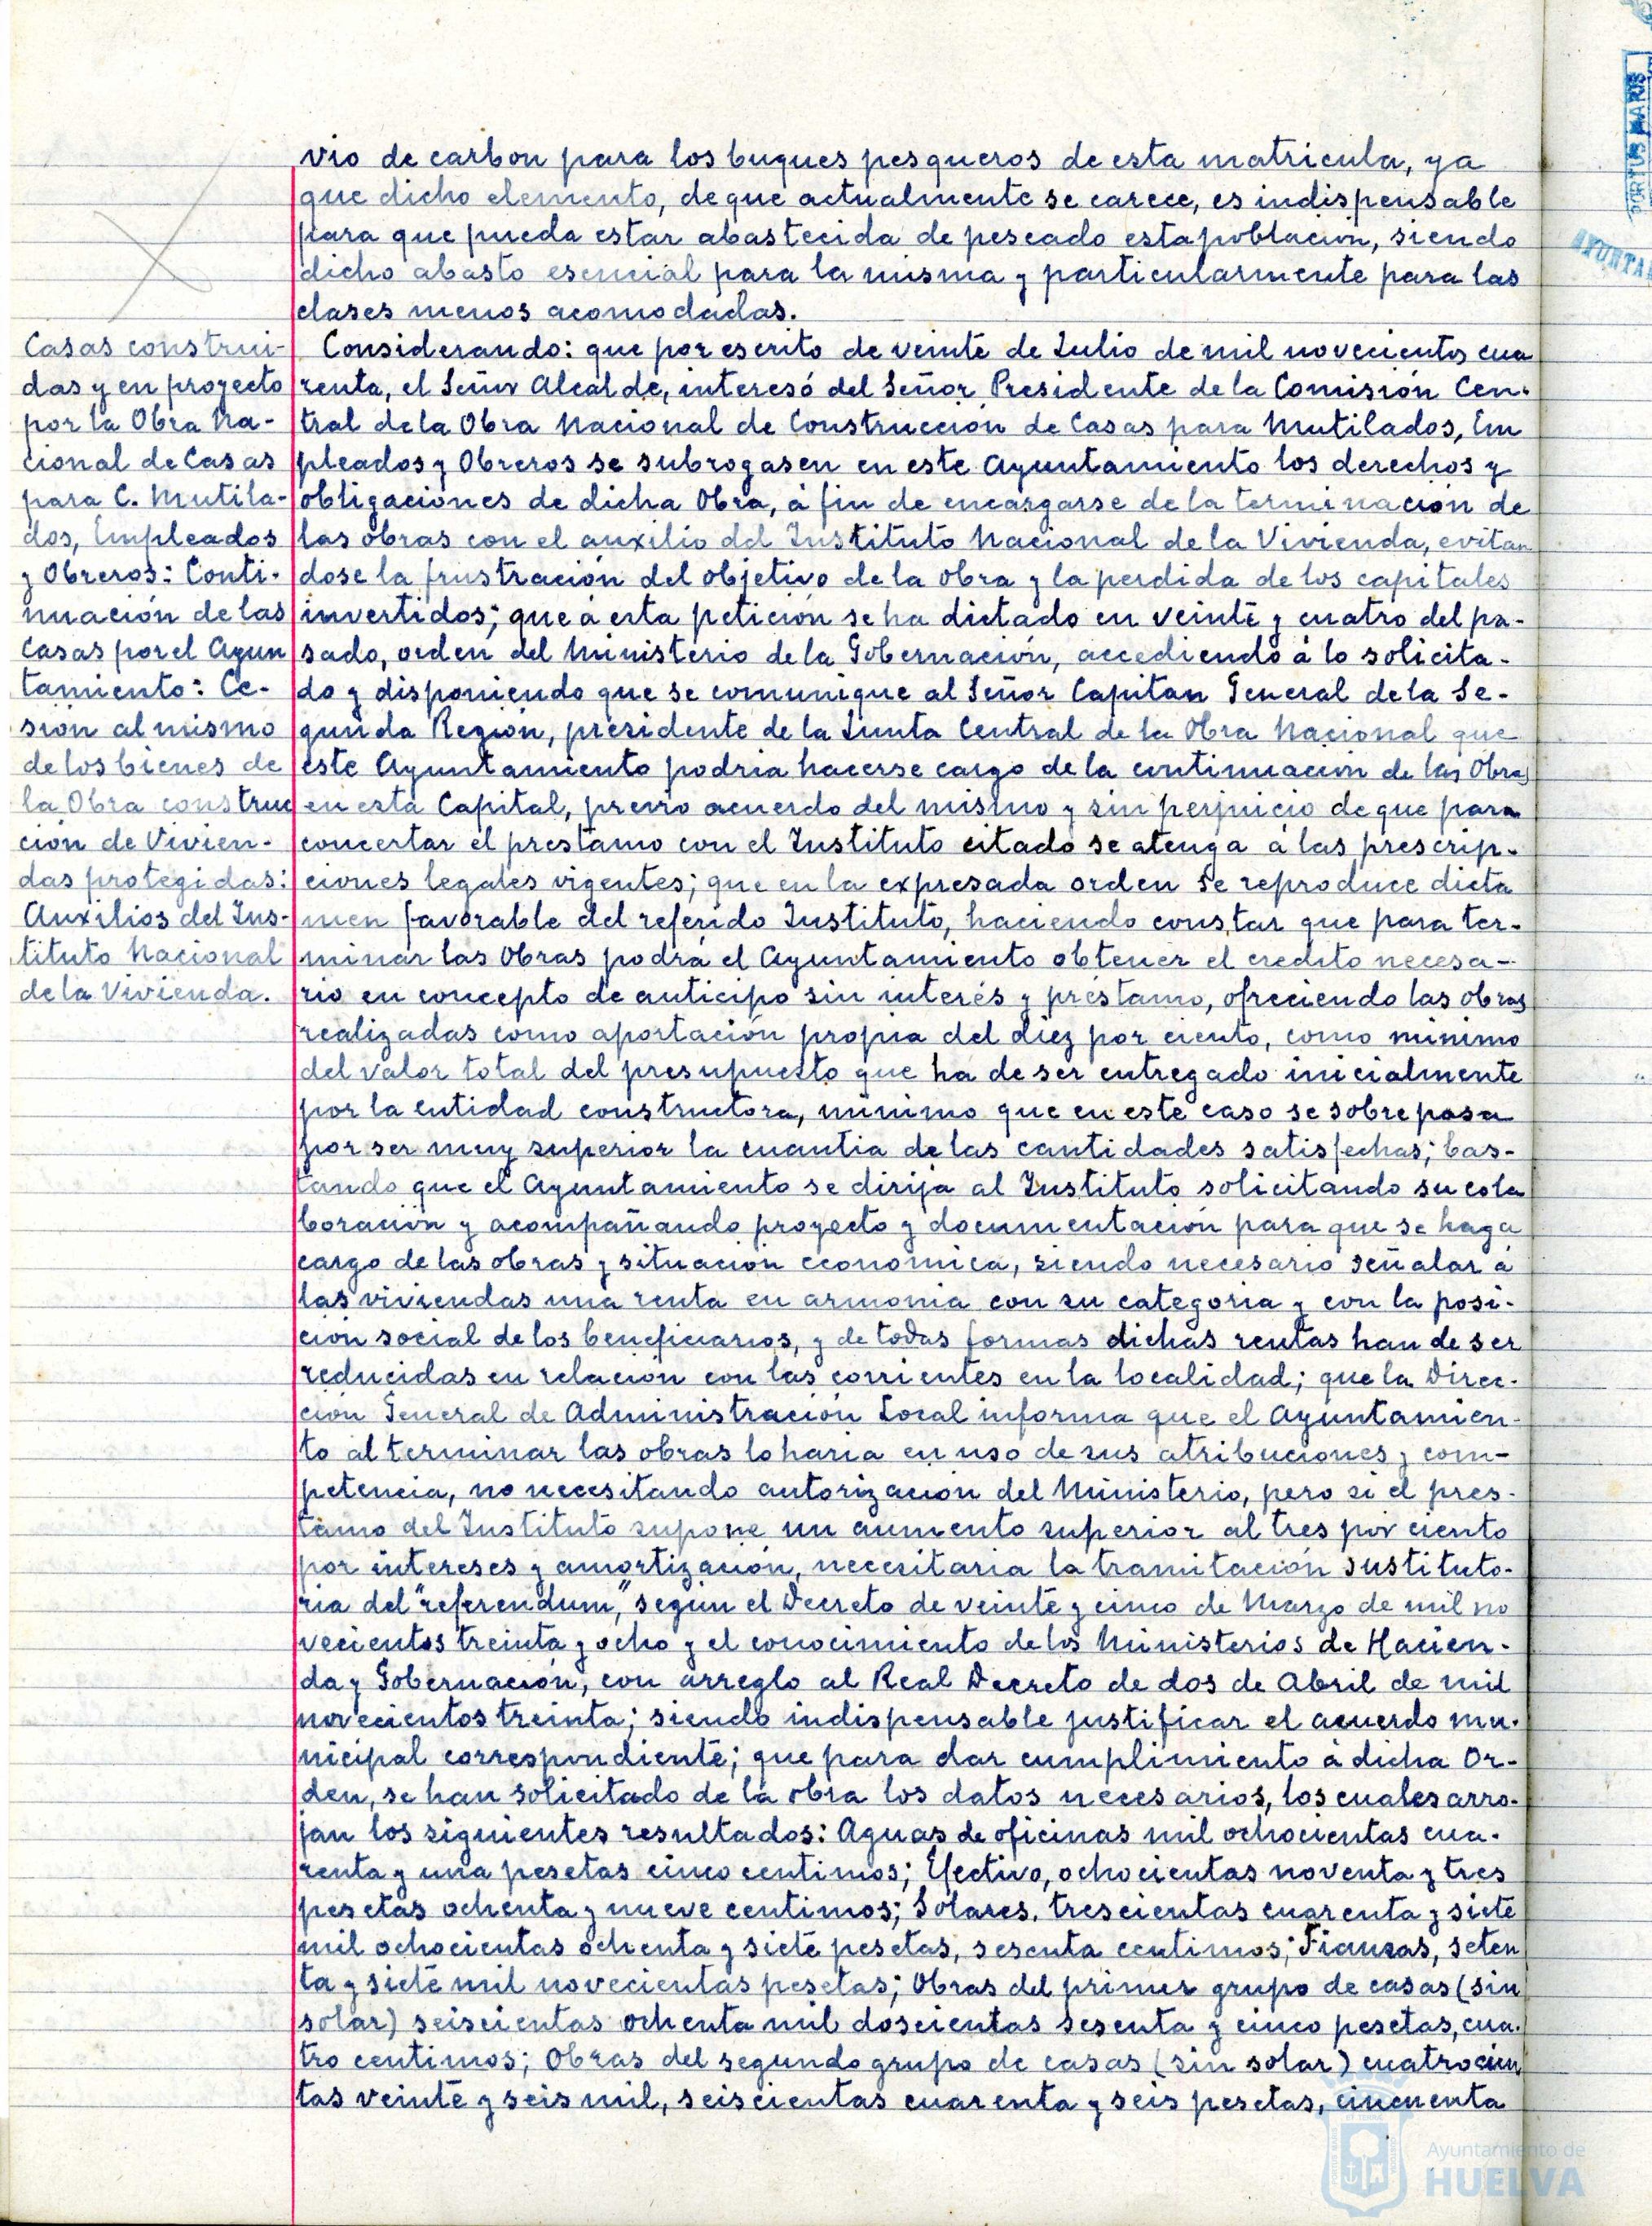 vio de carbon para los buques pesqueros de esta matricula, ya
que dicho elemento, de que actualmente se carece, es indispensable
para que pueda estar abastecida de pescado esta poblacion, siendo
dicho abasto esencial para la misma y particularmente para las
clases menos acomodadas.
Casas construi-
das y en proyecto
por la Obra Na-
cional de Casas
para C. Mutila-
dos, Empleados
y Obreros: Conti-
nuación de las
Casas por el Ayun
tamiento: Ce-
sión al mismo
de los bienes de
la Obra construc
ción de Vivien-
das protegidas:
Auxilios del Ins-
tituto Nacional
de la Vivienda.
Considerando: que por escrito de veinte de Julio de mil novecientos cua
renta, el Señor Alcalde, interesó del Señor Presidente de la Comisión Cen-
tral de la Obra Nacional de Construcción de Casas para Mutilados, Em
pleados y Obreros se subrogasen en este Ayuntamiento los derechos y
obligaciones de dicha Obra, á fin de encargarse de la terminación de
las obras con el auxilio del Instituto Nacional de la Vivienda, evitan
dose la frustración del objetivo de la obra y la perdida de los capitales
invertidos; que á esta petición se ha dictado en veinte y cuatro del pa-
sado, orden del Ministerio de la Gobernación, accediendo á lo solicita-
do y disponiendo que se comunique al Señor Capitan General de la Se-
gunda Región, presidente de la Junta Central de la Obra Nacional que
este Ayuntamiento podria hacerse cargo de la continuación de las Obras
en esta Capital, previo acuerdo del mismo y sin perjuicio de que para
concertar el prestamo con el Instituto citado se atenga á las prescrip-
ciones legales vigentes; que en la expresada orden se reproduce dicta
men favorable del referido Instituto, haciendo constar que para ter-
minar las Obras podrá el Ayuntamiento obtener el credito necesa-
rio en concepto de anticipo sin interés y préstamo, ofreciendo las obras
realizadas como aportación propia del diez por ciento, como minimo
del valor total del presupuesto que ha de ser entregado inicialmente
por la entidad constructora, minimo que en este caso se sobrepasa
por ser muy superior la cuantia de las cantidades satisfechas; bas-
tando que el Ayuntamiento se dirija al Instituto solicitando su cola
boración y acompañando proyecto y documentación para que se haga
cargo de las obras y situación economica, siendo necesario señalar á
las viviendas una renta en armonia con su categoria y con la posi-
ción social de los beneficiarios, y de todas formas dichas rentas han de ser
reducidas en relación con las corrientes en la localidad; que la Direc-
ción General de Administración Local informa que el Ayuntamien-
to al terminar las obras lo haria en uso de sus atribuciones y com-
petencia, no necesitando autorización del Ministerio, pero si el pres-
tamo del Instituto supone un aumento superior al tres por ciento
por intereses y amortización, necesitaria la tramitación sustituto-
ria del "referendum", según el Decreto de veinte y cinco de Marzo de mil no
vecientos treinta y ocho y el conocimiento de los Ministerios de Hacien-
da y Gobernación, con arreglo al Real Decreto de dos de Abril de mil
novecientos treinta; siendo indispensable justificar el acuerdo mu-
nicipal correspondiente; que para dar cumplimiento á dicha Or-
den, se han solicitado de la obra los datos necesarios, los cuales arro-
jan los siguientes resultados: Aguas de oficinas mil ochocientas cua-
renta y una pesetas cinco centimos; Efectivo, ochocientas noventa y tres
pesetas ochenta y nueve centimos; Solares, trescientas cuarenta y siete
mil ochocientas ochenta y siete pesetas, sesenta centimos; Fianzas, seten
ta y siete mil novecientas pesetas; Obras del primer grupo de casas (sin
solar) seiscientas ochenta mil doscientas sesenta y cinco pesetas, cua-
tro centimos; Obras del segundo grupo de casas (sin solar) cuatrocien
tas veinte y seis mil, seiscientas cuarenta y seis pesetas, cincuenta
PORTUS MARIS
AYUNTA
Ayuntamiento de
HUELVA